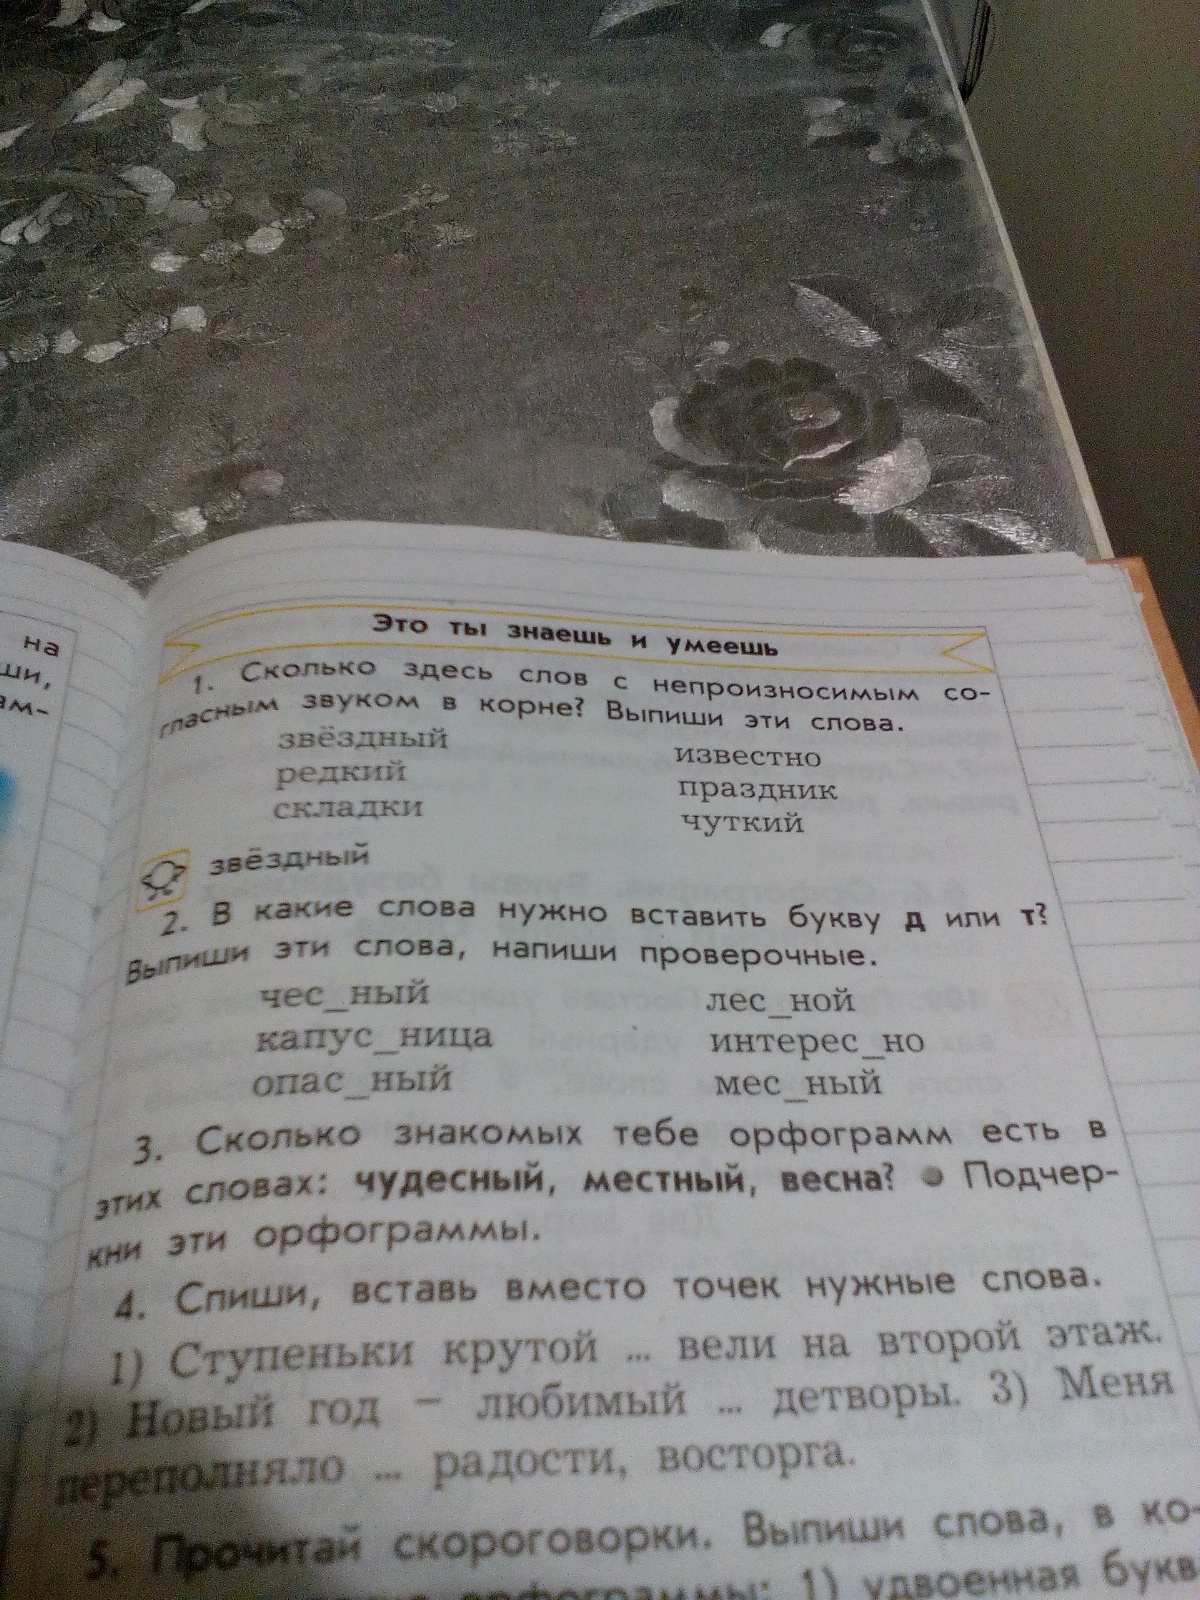 на
ши,
ам-
Это ты знаешь и умеешь
1. Сколько здесь слов с непроизносимым со-
гласным звуком в корне? Выпиши эти слова.
звёздный известно
редкий праздник
складки чуткий
звёздный
2. В какие слова нужно вставить букву д или т?
Выпиши эти слова, напиши проверочные.
чес_ный лес_ной
капус_ница интерес_но
опас_ный мес_ный
3. Сколько знакомых тебе орфограмм есть в
этих словах: чудесный, местный, весна? Подчер-
кни эти орфограммы.
4. Спиши, вставь вместо точек нужные слова.
1) Ступеньки крутой ... вели на второй этаж.
2) Новый год – любимый ... детворы. 3) Меня
переполняло ... радости, восторга.
5. Прочитай скороговорки. Выпиши слова, в ко-
орфограммы: 1) удвоенная букв-